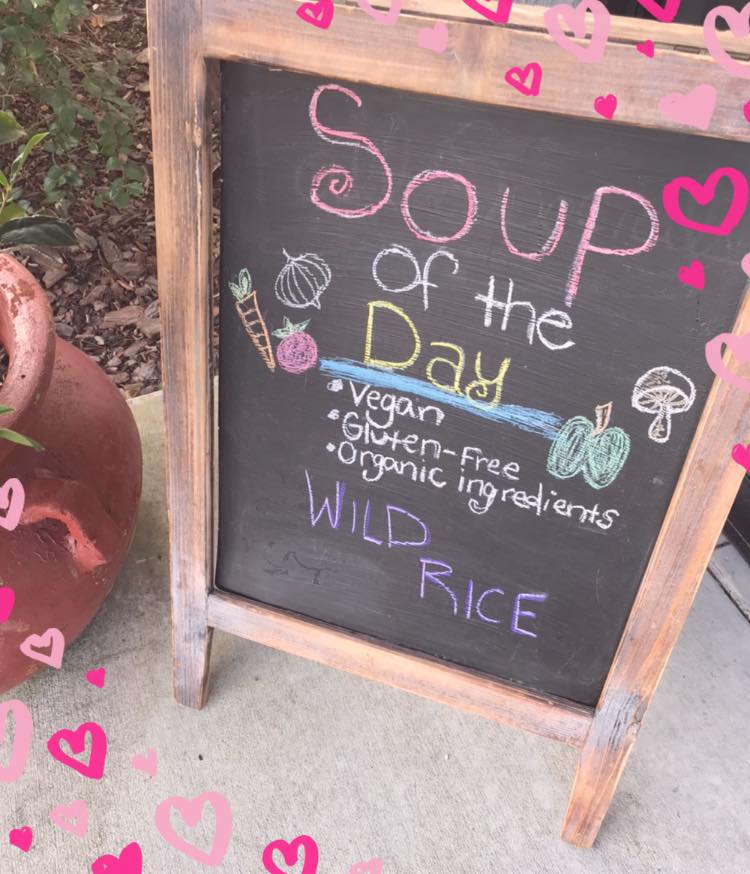 Soup
of the
Day
• Vegan
• Gluten-Free
• Organic ingredients
WILD
RICE